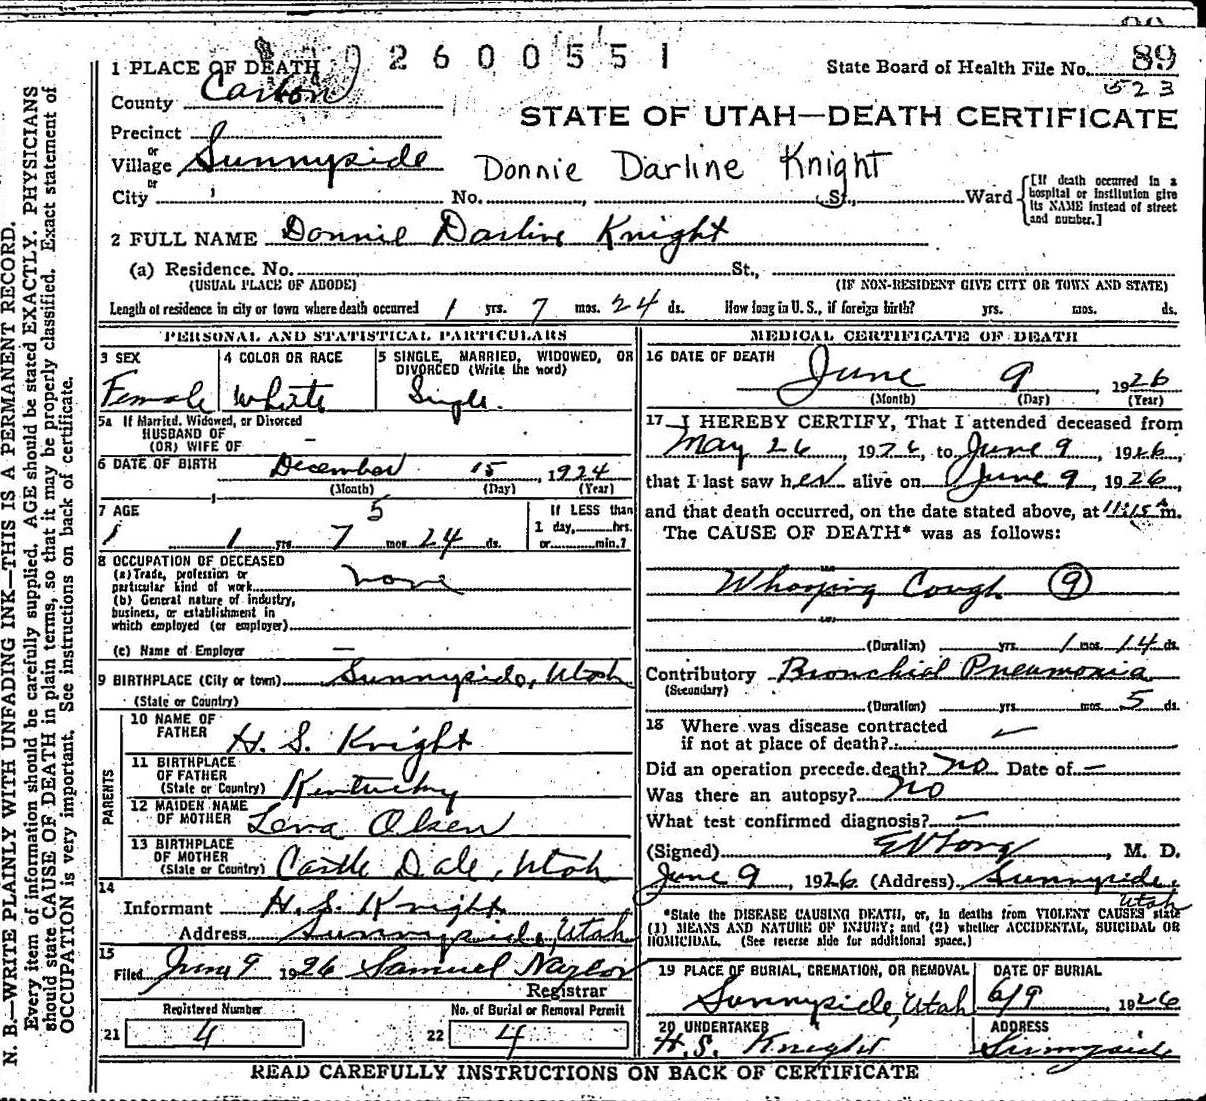 02600551
1 PLACE OF DEATH
State Board of Health File No. 89
523
County Carbon
STATE OF UTAH—DEATH CERTIFICATE
Precinct
or
Village Sunnyside
Donnie Darline Knight
or
City No. St., Ward
[If death occurred in a hospital or institution give its NAME instead of street and number.]
2 FULL NAME Donnie Darline Knight
(a) Residence. No. St.,
(USUAL PLACE OF ABODE) (IF NON-RESIDENT GIVE CITY OR TOWN AND STATE)
Length of residence in city or town where death occurred 1 yrs. 7 mos. 24 ds. How long in U.S., if foreign birth? yrs. mos. ds.
PERSONAL AND STATISTICAL PARTICULARS
3 SEX
Female
4 COLOR OR RACE
White
5 SINGLE, MARRIED, WIDOWED, OR
DIVORCED (Write the word)
Single.
5a If Married, Widowed, or Divorced
HUSBAND OF
(OR) WIFE OF –
6 DATE OF BIRTH December 15, 1924
(Month) (Day) (Year)
7 AGE
5
1 yrs. 7 mos. 24 ds.
If LESS than
1 day, hrs.
or min.?
8 OCCUPATION OF DECEASED
(a) Trade, profession or
particular kind of work none
(b) General nature of industry,
business, or establishment in
which employed (or employer)
(c) Name of Employer —
9 BIRTHPLACE (City or town) Sunnyside, Utah
(State or Country)
PARENTS
10 NAME OF
FATHER H. S. Knight
11 BIRTHPLACE
OF FATHER
(State or Country) Kentucky
12 MAIDEN NAME
OF MOTHER Lena Olsen
13 BIRTHPLACE
OF MOTHER
(State or Country) Castle Dale, Utah
14
Informant H. S. Knight
Address Sunnyside, Utah
15
Filed June 9 1926 Samuel Naylor
Registrar
Registered Number
21 4
No. of Burial or Removal Permit
22 4
MEDICAL CERTIFICATE OF DEATH
16 DATE OF DEATH
June 9, 1926
(Month) (Day) (Year)
17 I HEREBY CERTIFY, That I attended deceased from
May 26, 1926, to June 9, 1926,
that I last saw her alive on June 9, 1926,
and that death occurred, on the date stated above, at 11:15 a m.
The CAUSE OF DEATH* was as follows:
Whooping Cough 9
(Duration) yrs. 1 mos. 14 ds.
Contributory Bronchial Pneumonia
(Secondary)
(Duration) yrs. mos. 5 ds.
18 Where was disease contracted
if not at place of death? –
Did an operation precede death? No Date of –
Was there an autopsy? No
What test confirmed diagnosis? –
(Signed), M. D.
June 9, 1926 (Address) Sunnyside,
Utah
*State the DISEASE CAUSING DEATH, or, in deaths from VIOLENT CAUSES state
(1) MEANS AND NATURE OF INJURY; and (2) whether ACCIDENTAL, SUICIDAL OR
HOMICIDAL. (See reverse side for additional space.)
19 PLACE OF BURIAL, CREMATION, OR REMOVAL
Sunnyside, Utah
DATE OF BURIAL
6/9, 1926
20 UNDERTAKER
H. S. Knight
ADDRESS
Sunnyside
READ CAREFULLY INSTRUCTIONS ON BACK OF CERTIFICATE
N. B.—WRITE PLAINLY WITH UNFADING INK—THIS IS A PERMANENT RECORD.
Every item of information should be carefully supplied. AGE should be stated EXACTLY. PHYSICIANS
should state CAUSE OF DEATH in plain terms, so that it may be properly classified. Exact statement of
OCCUPATION is very important. See instructions on back of certificate.